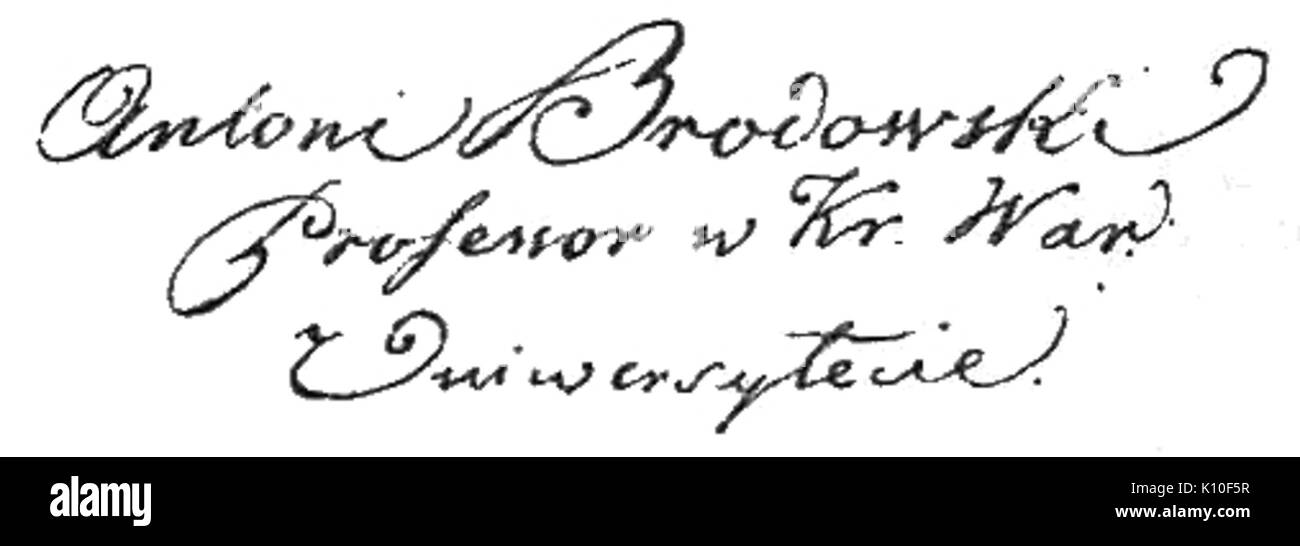 Antoni Brodowski
Professor w Kr. War.
Uniwersytecie.
alamy
Image ID: K10F5R
www.alamy.com